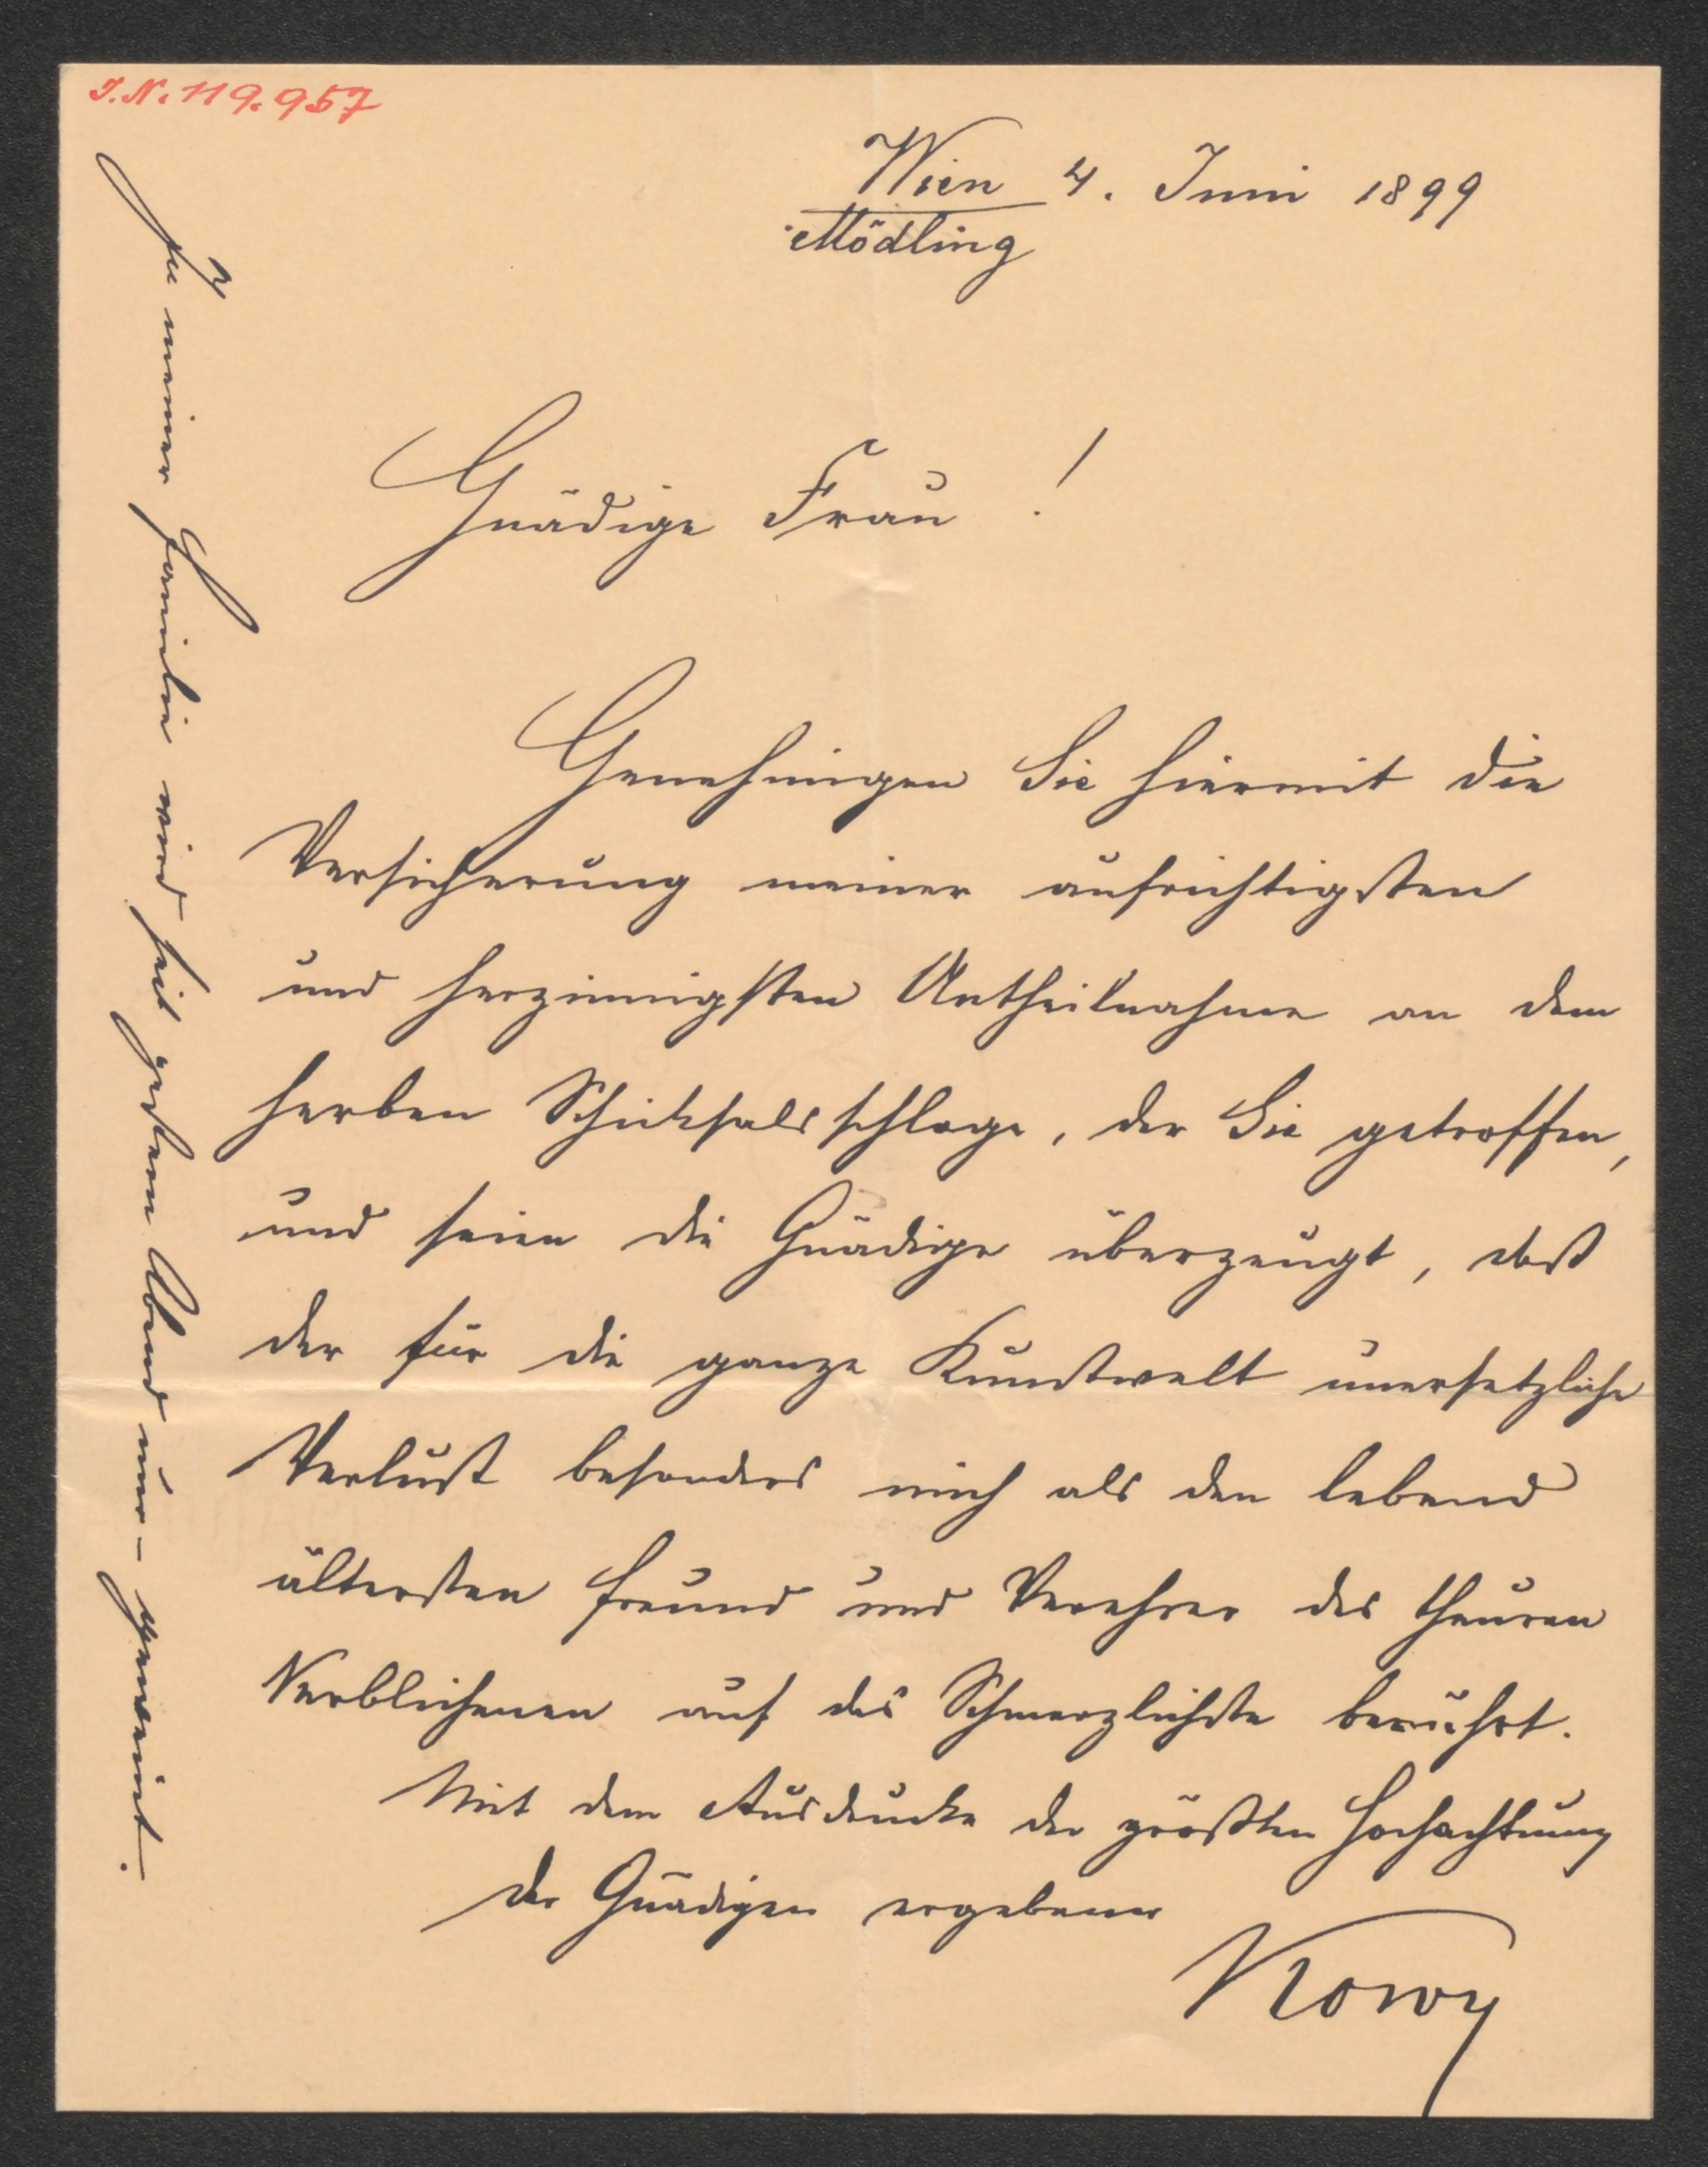 I.N. 119.957
Wien 4. Juni 1899
Mödling
Gnädige Frau!
Genehmigen Sie hiermit die
Versicherung meiner aufrichtigsten
und herzinnigsten Antheilnahme an dem
herben Schicksalsschlage, der Sie getroffen,
und seien die Gnädige überzeugt, daß
der für die ganze Kunstwelt unersetzliche
Verlust besonders mich als den lebend
ältesten Freund und Verehrer des theuren
Verblichenen auf das Schmerzlichste berührt.
Mit dem Ausdrucke der größten Hochachtung
der Gnädigen ergebener
Nowy
In meiner Familie wird seit gestern Abend nur – geweint.